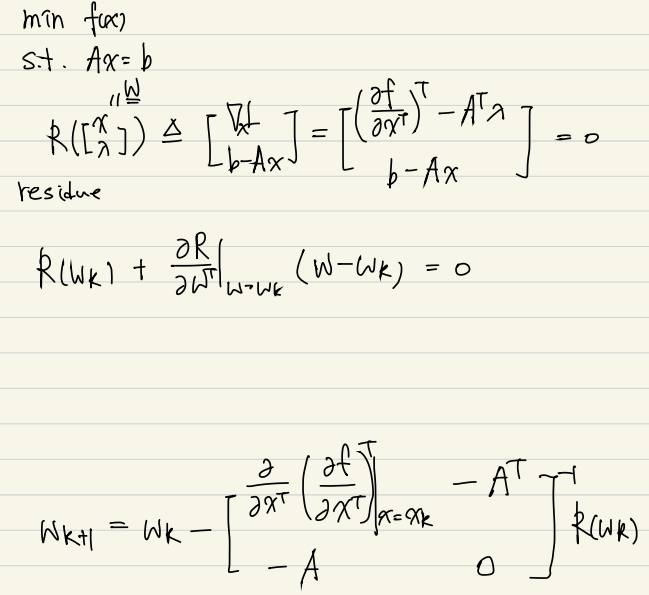 min f(x)
s.t. Ax = b
R([x λ]) ≜ [∇ₓL ; b-Ax] = [(∂f/∂xᵀ)ᵀ - Aᵀλ ; b-Ax] = 0
" ≜ W
residue
R(Wk) + ∂R/∂Wᵀ|W=Wk (W-Wk) = 0
Wk+1 = Wk - [∂/∂xᵀ (∂f/∂xᵀ)ᵀ|x=xk  -Aᵀ ; -A  0]⁻¹ R(Wk)